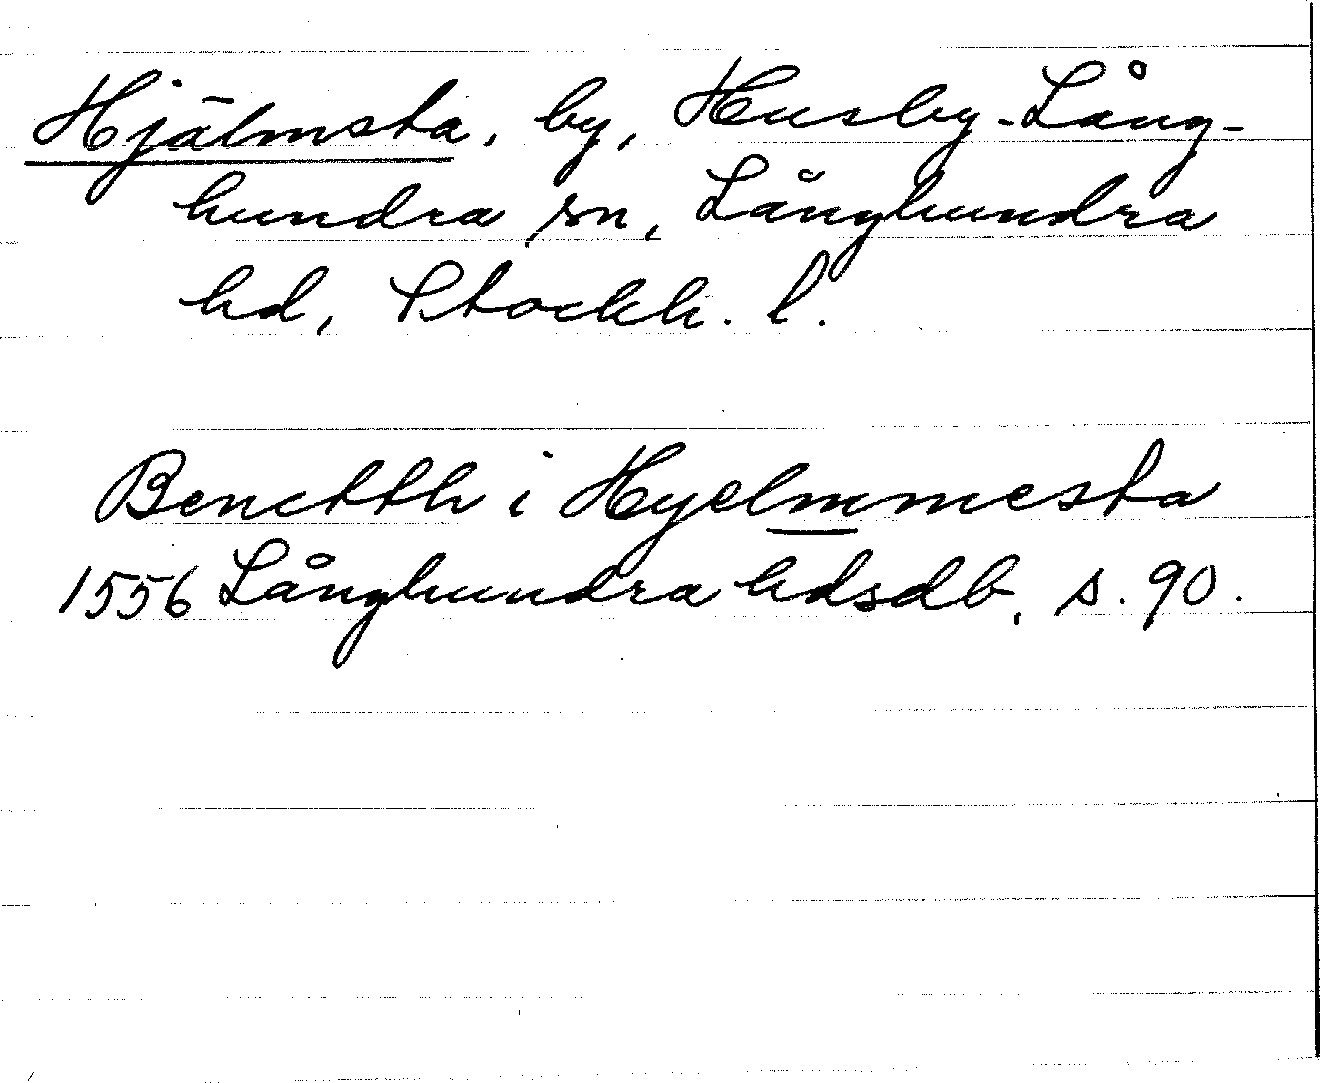 Hjälmsta, by, Husby-Lång-
hundra sn, Långhundra
hd, Stockh. l.
Benctth i Hyelmmesta
1556 Långhundra hdsdb, s. 90.